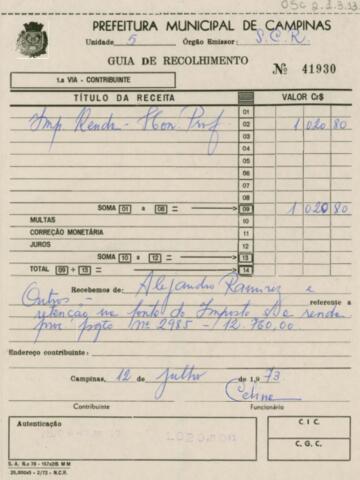 OSC 2.1.3.33
PREFEITURA MUNICIPAL DE CAMPINAS
Unidade 5 Órgão Emissor: S.C.R.
GUIA DE RECOLHIMENTO
Nº 41930
1.a VIA - CONTRIBUINTE
TÍTULO DA RECEITA VALOR Cr$
01
Imp. Renda - Hon. Prof. 02 1 020 80
03
04
05
06
07
08
SOMA 01 a 08 = 09 1 020 80
MULTAS 10
CORREÇÃO MONETÁRIA 11
JUROS 12
SOMA 10 a 12 = 13
TOTAL 09 + 13 = 14
Recebemos de: Alejandro Ramirez e
Outros - referente a
retenção na fonte do Imposto de renda
proc. pagto nº 2985 - 12.760,00.
Endereço contribuinte:
Campinas, 12 de julho de 1.973
Celine
Contribuinte Funcionário
Autenticação C. I. C.
1.020,80
C. G. C.
S. A. N.o 76 - 157x215 M M
25.000x5 - 2/73 - N.C.R.